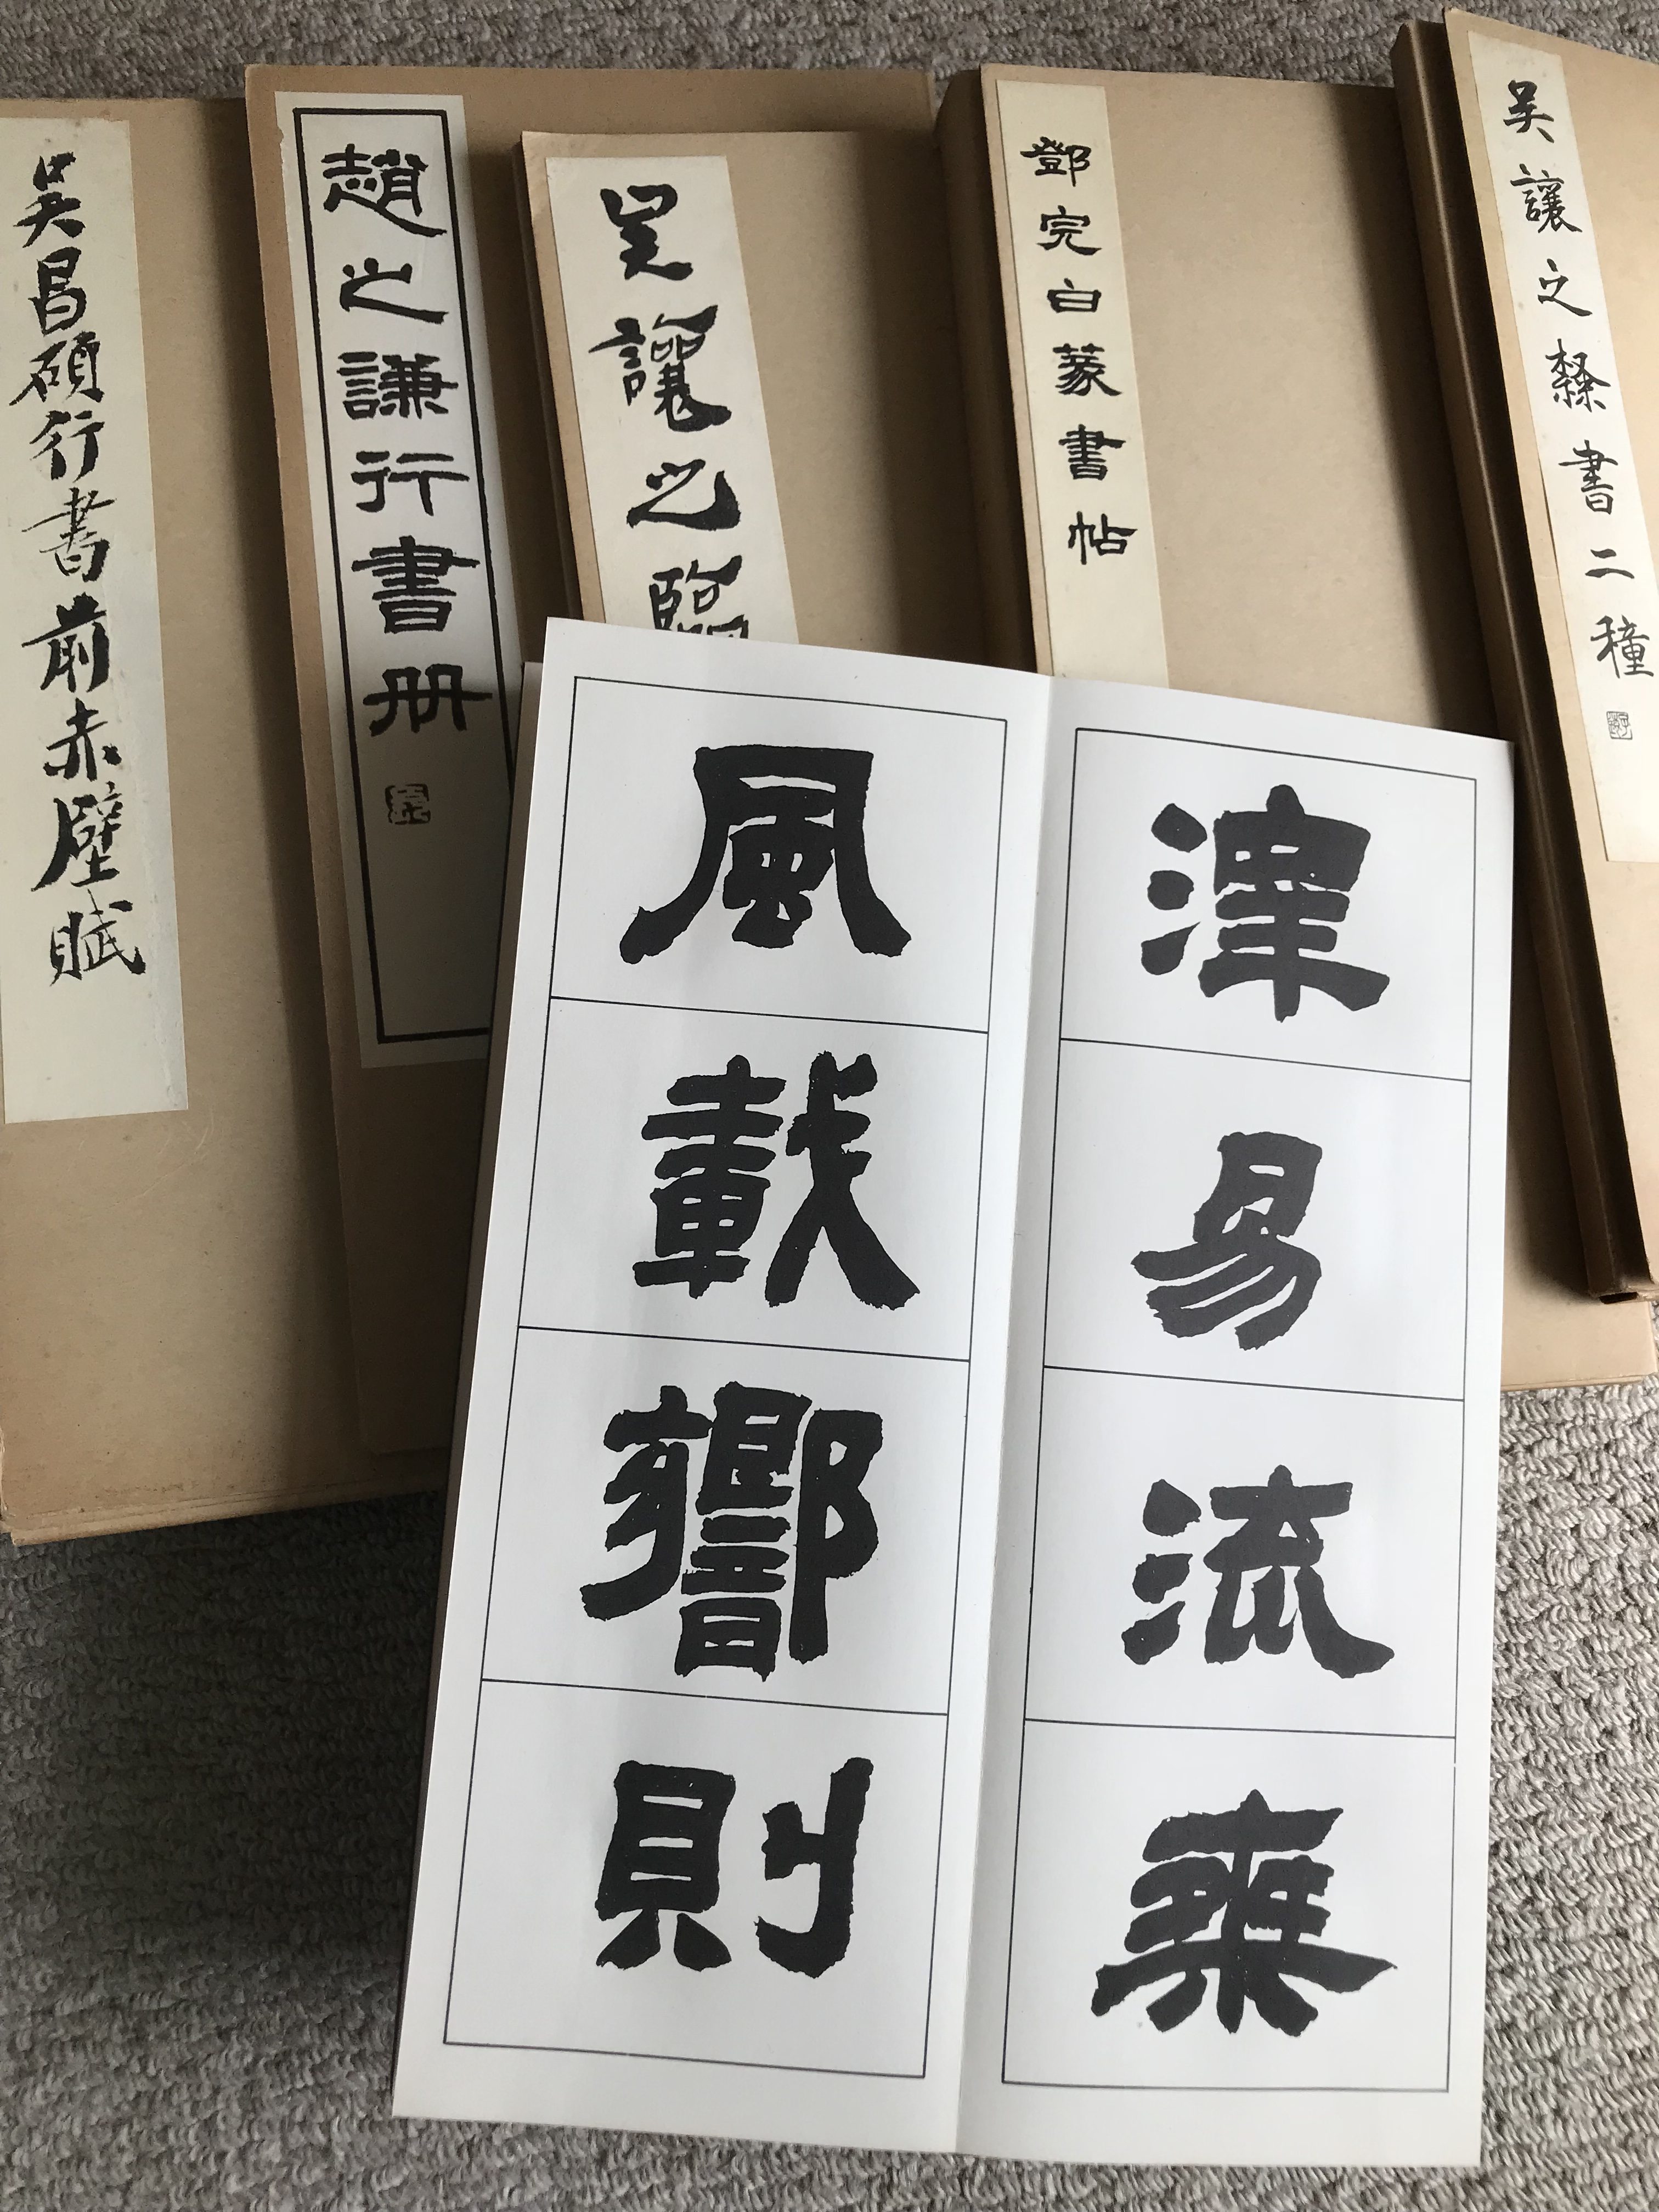 吳讓之隸書二種
鄧完白篆書帖
吳讓之臨
趙之謙行書册
吳昌碩行書前赤壁賦
澤易流乘
風載響則